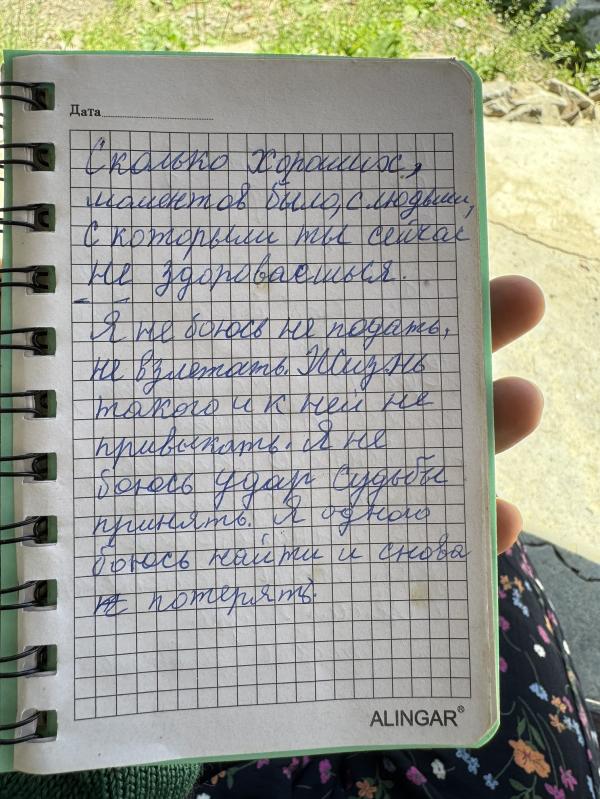 Дата
Сколько хороших,
моментов было, с людьми,
с которыми ты сейчас
не здороваешься.
Я не боюсь не подать,
не взлетать. Жизнь
такого и к ней не
привыкать. Я не
боюсь удар судьбы
принять. Я одного
боюсь найти и снова
потерять.
ALINGAR®